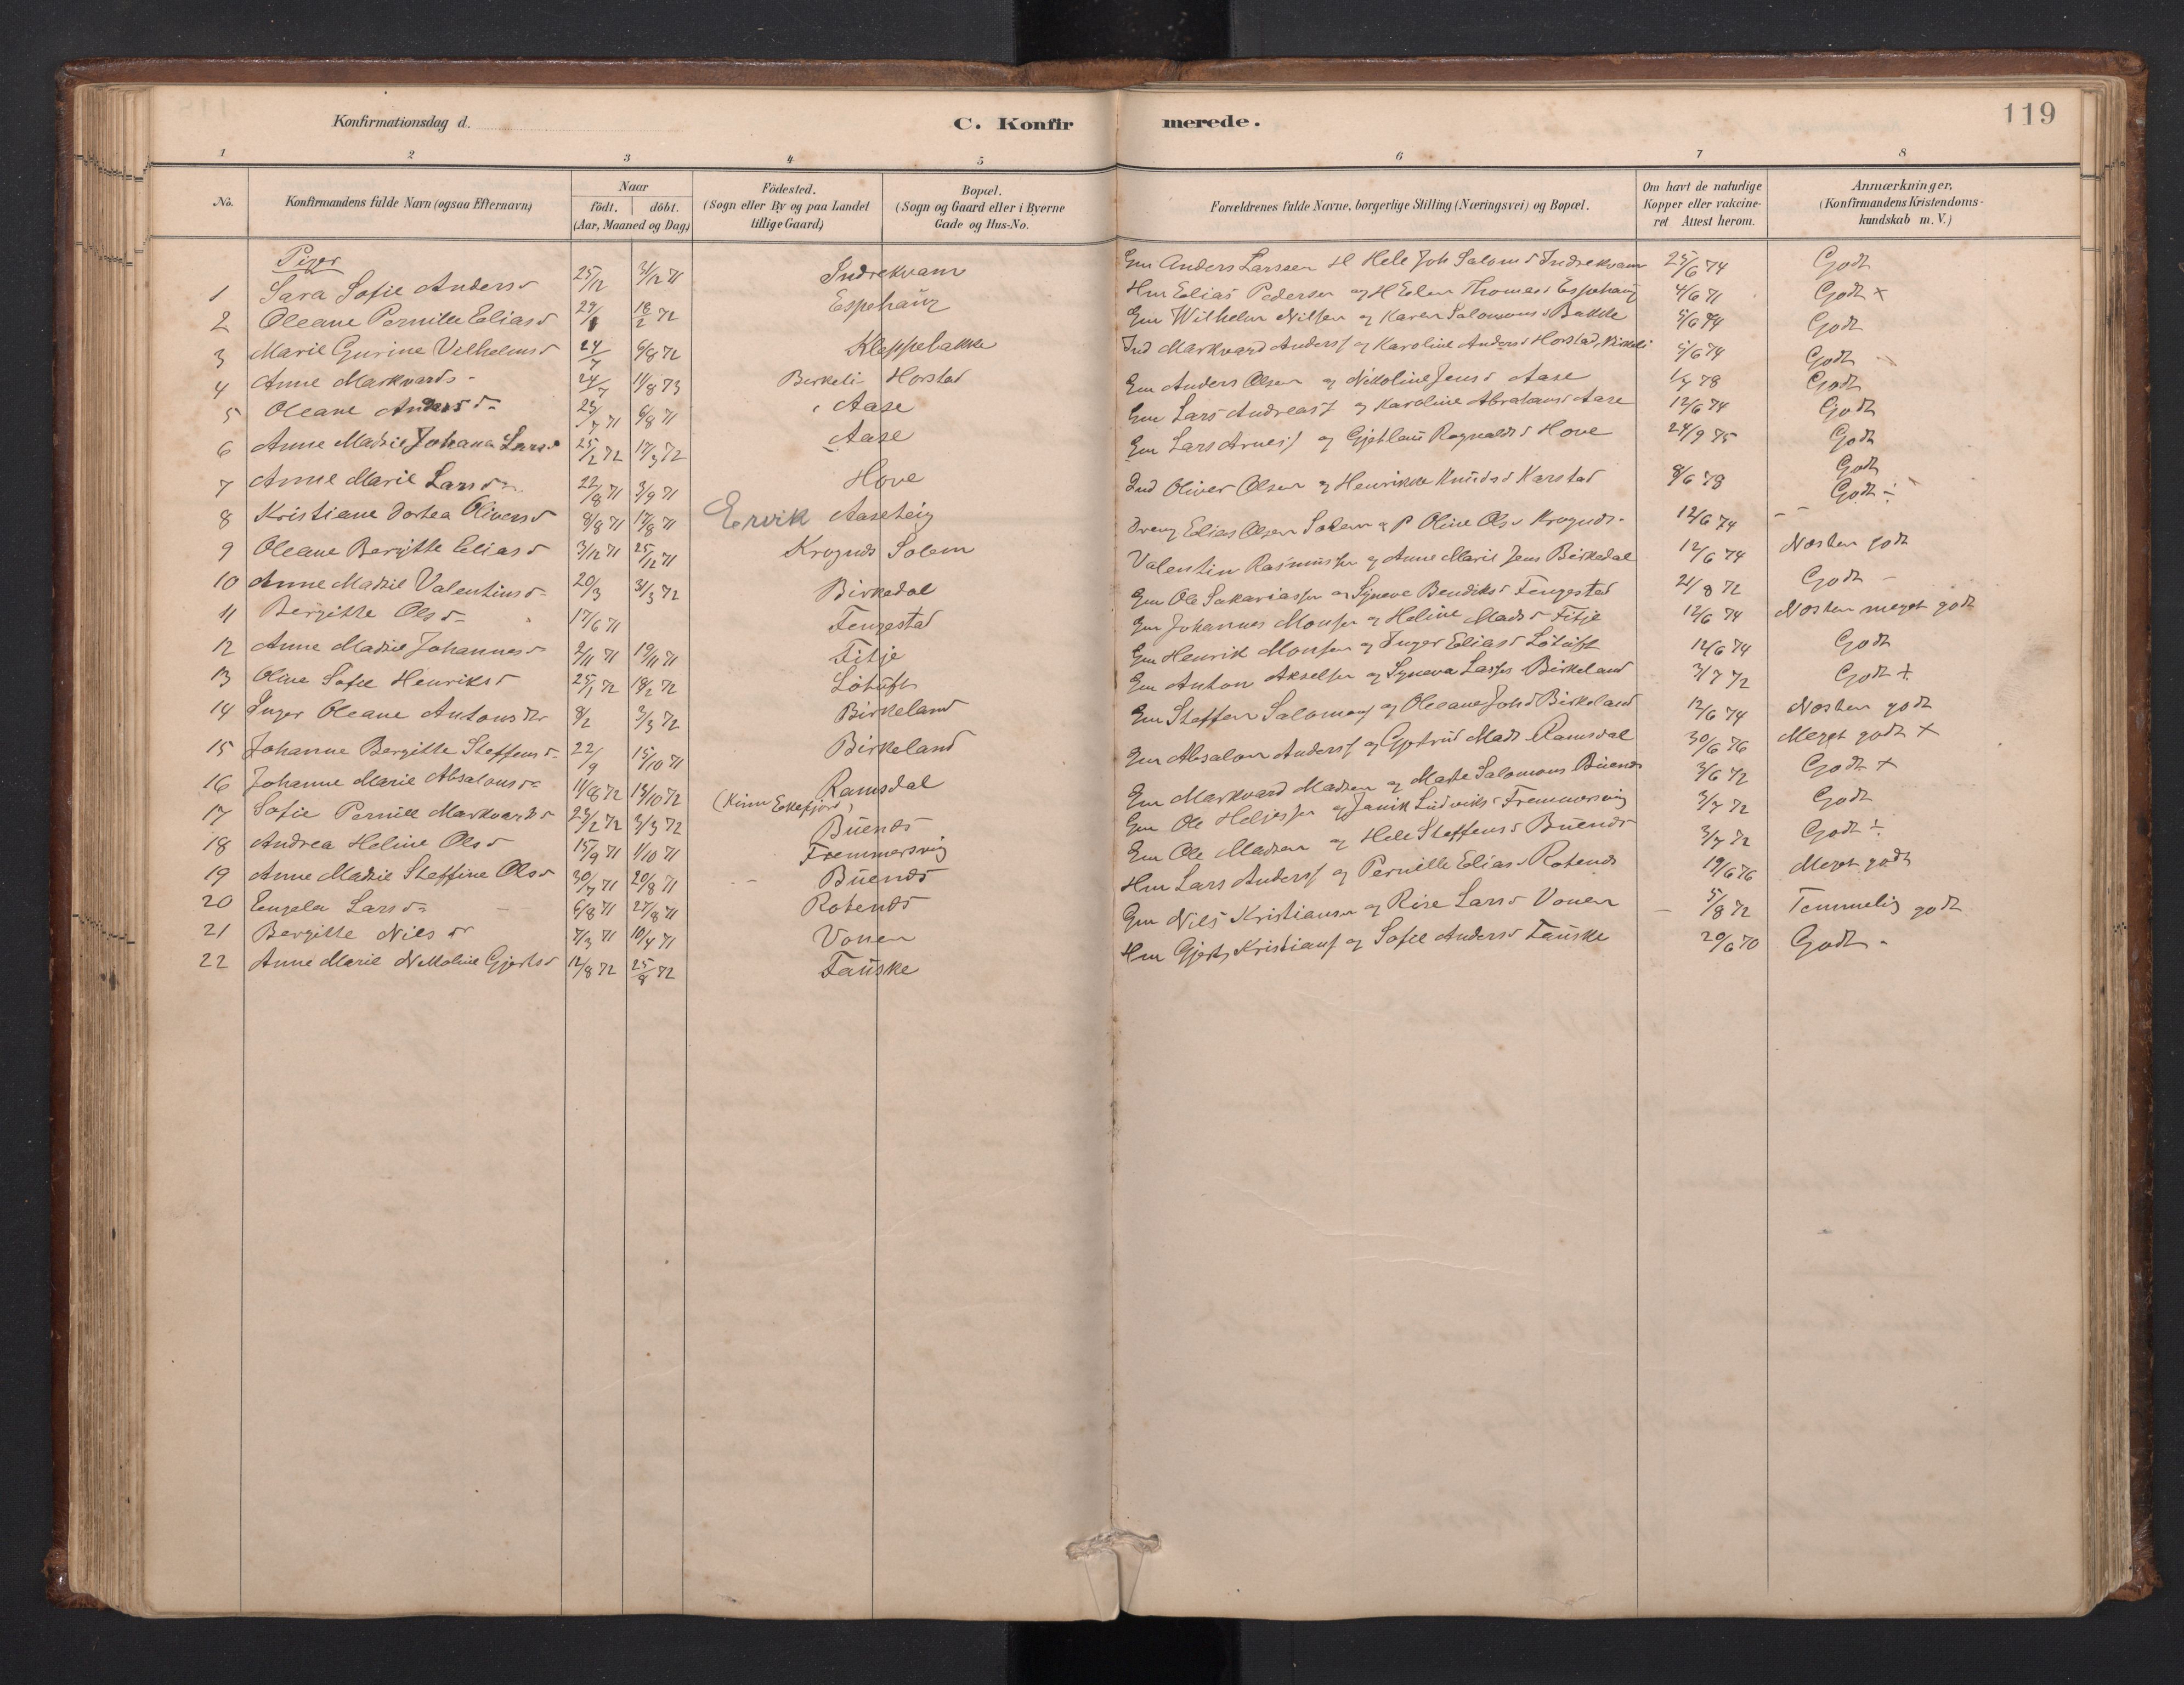 119
Konfirmationsdag d. C. Konfirmerede.
1 2 3 4 5 6 7 8
No. Konfirmandens fulde Navn (ogsaa Efternavn) Naar födt. döbt. (Aar, Maaned og Dag) Födested. (Sogn eller By og paa Landet tillige Gaard) Bopæl. (Sogn og Gaard eller i Byerne Gade og Hus-No. Forældrenes fulde Navne, borgerlige Stilling (Næringsvei) og Bopæl. Om havt de naturlige Kopper eller vakcineret Attest herom. Anmærkninger, (Konfirmandens Kristendomskundskab m. V.)
Piger
1 Sara Sofie Andersd 25/12 31/12 71 Indrekvam Gm Anders Larssen Hele Joh Salomd Indrekvam 25/6 74 Godt
2 Oleane Pernille Eliasd 18/2 72 Espehaug Hm Elias Pedersen og Thomasd Espehaug 4/6 71 Godt +
3 Marie Gurine Velhelmsd 24/7 6/8 72 Kleppebakke Gm Wilhelm Nilsen og Karen Salomonsd Bakke Godt
4 Anne Markvards 24/7 11/8 73 Birkeli Horstad Ind Markvard Anderss og Karoline Andersd Horstad, Birkeli 5/6 74 Godt
5 Oleane Andersd 6/8 71 Aase Gm Anders Olsen og Nikoline Jensd Aase 1/7 78 Godt
6 Anne Madzie Johana Larsd 25/2 72 17/3 72 Aase Gm Lars Andreass og Karoline Abrahamsd Aase 12/6 74 Godt
7 Anne Marie Larsd 22/8 71 3/9 71 Hove Gm Lars Arness og Gjetlaug Ragnaldsd Hove 24/9 75 Godt
8 Kristiane Dortea Oliversd 8/8 71 17/8 71 Ervik Aaseteig Ind Oliver Olsen og Henrikke Knudsd Karstad 8/6 78 Godt
9 Oleane Bergitte Eliasd 3/12 71 25/12 71 Krognds Solem Dreng Elias Olsen Solem og P Oline Olsd Krognds 12/6 74 Godt ÷
10 Anne Madzie Valentinsd 20/3 31/3 72 Birkedal Valentin Rasmussen og Anne Marie Jens Birkedal 12/6 74 Næsten godt
11 Bergitte Olsd 17/6 71 Tengestad Gm Ole Sakariassen og Synneve Bendiksd Tengestad 21/8 72 Godt
12 Anne Madzie Johannesd 2/11 71 19/11 71 Fitje Gm Johannes Monsen og Heline Madsd Fitje 12/6 74 Næsten meget godt
13 Oline Sofie Henriksd 25/1 72 18/2 72 Lötuft Gm Henrik Monsen og Inger Eliasd Lötuft 12/6 74 Godt
14 Inger Oleane Antonsdtr 8/2 3/3 72 Birkeland Gm Anton Akselsen og Syneva Lasses Birkeland 3/7 72 Godt +
15 Johanne Bergitte Steffensd 22/9 15/10 71 Birkeland Gm Steffen Salomons og Oleane Johsd Birkeland 12/6 74 Næsten godt
16 Johanne Marie Absalonsd 11/8 72 13/10 72 Ramsdal Gm Absalon Anderss og Gjertrud Mads Ramsdal 30/6 76 Meget godt +
17 Sofie Pernille Markvardsd 23/2 72 3/3 72 (Kinn Eikefjord) Büends Gm Markvard Madsen og Marte Salomons Büends 3/6 72 Godt +
18 Andrea Heline Olsd 15/9 71 1/10 71 Fremmersvig Gm Ole Heljessen og Janik Ludviksd Fremmersvig 3/7 72 Godt
19 Anne Madzie Steffine Olsd 30/7 71 20/8 71 Büends Gm Ole Madsen og Hele Steffensd Büends 3/7 72 Godt ÷
20 Engela Larsd 6/8 71 27/8 71 Rotends Hm Lars Anderss og Pernille Eliasd Rotends 19/6 76 Meget godt
21 Bergitte Nilsdr 7/3 71 10/4 71 Vonen Gm Nils Kristiansen og Rise Larsd Vonen 5/8 72 Temmelig godt
22 Anne Marie Nikoline Gjertsd 12/8 72 25/8 72 Tauske Hm Gjert Kristians og Sofie Andersd Tauske 20/6 70 Godt